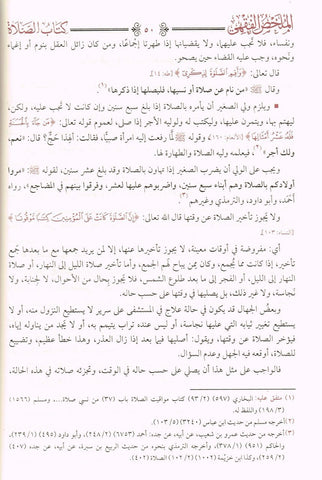 الملخص الفقهي
٥٠
كتاب الصلاة
ونفساء، فلا تجب عليهما، ولا يقضيانها إذا طهرتا إجماعًا، ومن كان زائل العقل بنوم أو إغماء
ونحوه، وجب عليه القضاء حين يصحو.
قال تعالى: ﴿وَأَقِمِ الصَّلَاةَ لِذِكْرِي﴾ [طه: ١٤].
وقال ﷺ: «من نام عن صلاة أو نسيها، فليصلها إذا ذكرها»(١).
• ويلزم ولي الصغير أن يأمره بالصلاة إذا بلغ سبع سنين وإن كانت لا تجب عليه، ولكن
ليهتم بها، ويتمرن عليها، وليكتب له ولوليه الأجر إذا صلى، لعموم قوله تعالى: ﴿مَن جَاءَ بِالْحَسَنَةِ
فَلَهُ عَشْرُ أَمْثَالِهَا﴾ [الأنعام: ١٦٠] وقوله ﷺ لما رفعت إليه امرأة صبيًّا، فقالت: ألهذا حج؟ قال: «نعم،
ولك أجر»(٢)، فيعلمه وليه الصلاة والطهارة لها.
ويجب على الولي أن يضرب الصغير إذا تهاون بالصلاة وقد بلغ عشر سنين، لقوله ﷺ: «مروا
أولادكم بالصلاة وهم أبناء سبع سنين، واضربوهم عليها لعشر، وفرقوا بينهم في المضاجع»، رواه
أحمد، وأبو داود، والترمذي وغيرهم(٣).
ولا يجوز تأخير الصلاة عن وقتها قال الله تعالى: ﴿إِنَّ الصَّلَاةَ كَانَتْ عَلَى الْمُؤْمِنِينَ كِتَابًا مَّوْقُوتًا﴾
[النساء: ١٠٣].
أي: مفروضة في أوقات معينة، لا يجوز تأخيرها عنها، إلا لمن يريد جمعها مع ما بعدها جمع
تأخير، إذا كانت مما تجمع، وكان ممن يباح لهم الجمع، وأما تأخير صلاة الليل إلى النهار، أو صلاة
النهار إلى الليل، أو الفجر إلى ما بعد طلوع الشمس، فلا يجوز بحال من الأحوال، لا لجنابة، ولا
نجاسة، ولا غير ذلك، بل يصليها في وقتها على حسب حاله.
وبعض الجهال قد يكون في حالة علاج في المستشفى على سرير لا يستطيع النزول منه، أو لا
يستطيع تغيير ثيابه التي عليها نجاسة، أو ليس عنده تراب يتيمم به، أو لا يجد من يناوله إياه،
فيؤخر الصلاة عن وقتها، ويقول: أصليها فيما بعد إذا زال العذر، وهذا خطأ عظيم، وتضييع
للصلاة، أوقعه فيه الجهل وعدم السؤال.
فالواجب على مثل هذا أن يصلي على حسب حاله في الوقت، وتجزئه صلاته في هذه الحالة،
(١) متفق عليه: البخاري (٥٩٧) (٢/ ٩٣) كتاب مواقيت الصلاة باب (٣٧) من نسي صلاة... ومسلم (١٥٦٦)
(٣/ ١٩٨) واللفظ له.
(٢) أخرجه مسلم من حديث ابن عباس (٣٢٤٠) (٥/ ١٠٣).
(٣) أخرجه من حديث عمرو بن شعيب، عن أبيه، عن جده: أحمد (٦٧٥٣) (٢/ ٢٤٨)، وأبو داود (٤٩٥) (١/ ٢٣٩)،
وأخرجه الترمذي بنحوه من حديث الربيع بن سبرة، عن أبيه، عن جده (٤٠٧)
(٢/ ٢٥٩)، وكذا ابن خزيمة (١٠٠٢) (٢/ ١٠٢) الصلاة (٤٠٢).